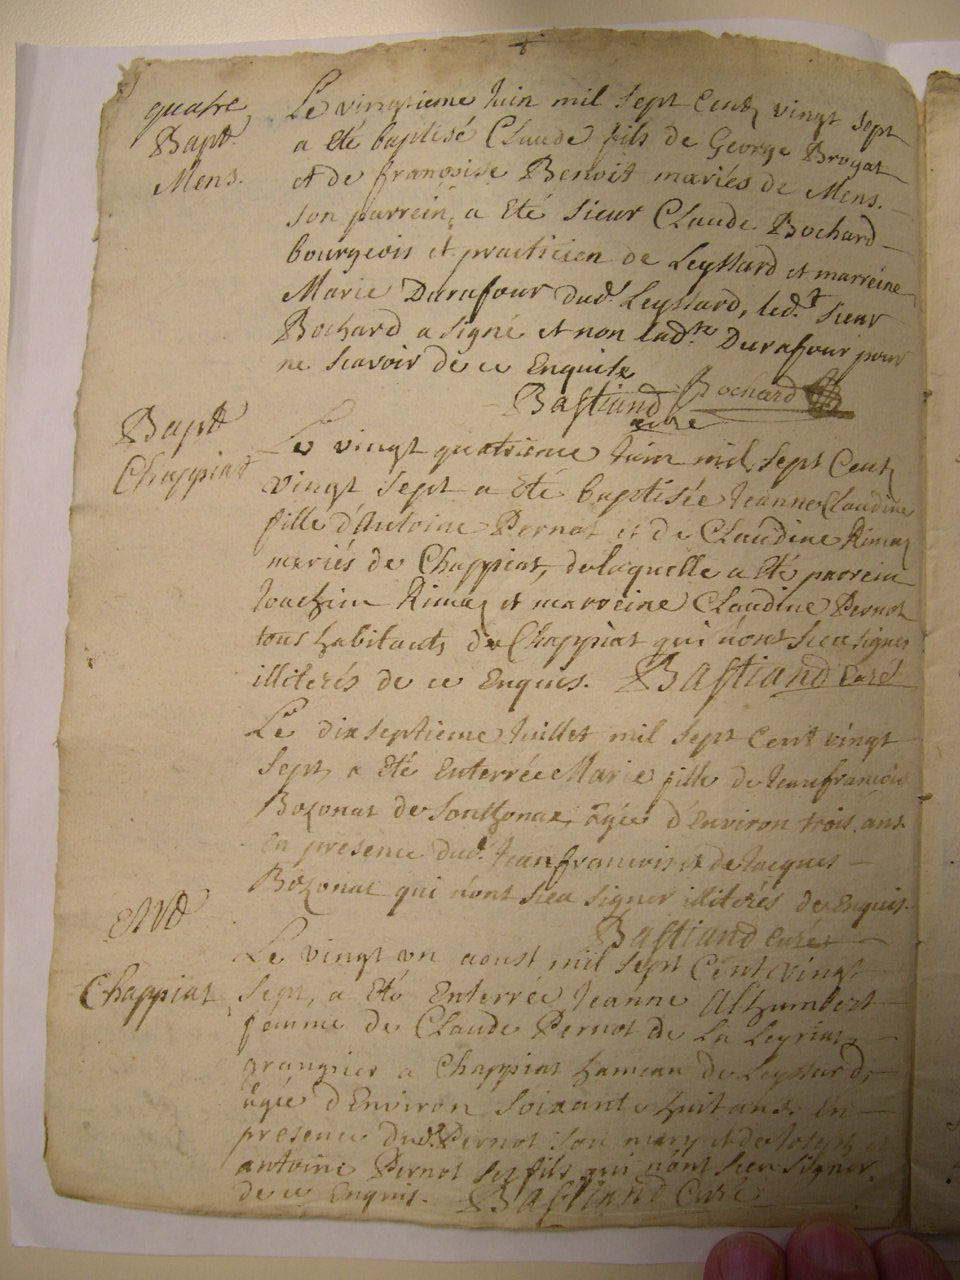 quatre
Bapt.
Mens.
Le vingtieme Juin mil sept Cent vingt sept
a été baptisé Claude fils de George Brogat
et de françoise Benoit mariés de Mens.
son parrein, a Eté sieur Claude Bochard
bourgeois et practicien de Leyssard et marreine
Marie Durafour dud. Leyssard, led.t sieur
Bochard a signé et non lad.te Durafour pour
ne scavoir de ce Enquise
Bastiand curé Bochard
Bapt
Chappiat
Le vingt quatrieme Juin mil sept Cent
vingt sept a été baptisée Jeanne Claudine
fille d'Antoine Pernot et de Claudine Rimaz
mariés de Chappiat, de laquelle a Eté parrein
Joachim Rimaz et marreine Claudine Pernot
tous habitants de Chappiat qui n'ont sceu signer
illiterés de ce Enquis. Bastiand Curé
Le dix septieme Juillet mil sept Cent vingt
sept, a Eté Enterrée Marie fille de Jeanfrançois
Bozonat de Soutzonax, agée d'Environ trois ans
En presence dud. Jeanfrancois et de Jacques
Bozonat qui n'ont sceu signer illiterés de Enquis
Bastiand curé
Chappiat
Le vingt un aoust mil sept Cent vingt
sept, a Eté Enterrée Jeanne Althumbert
femme de Claude Pernot de La Leyriat,
grangier a Chappiat hameau de Leyssard,
agée d'Environ soixante huit ans. En
presence dud. Pernot son mary et de Joseph et
antoine Pernot ses fils qui n'ont sceu signer
de ce Enquis. Bastiand Curé